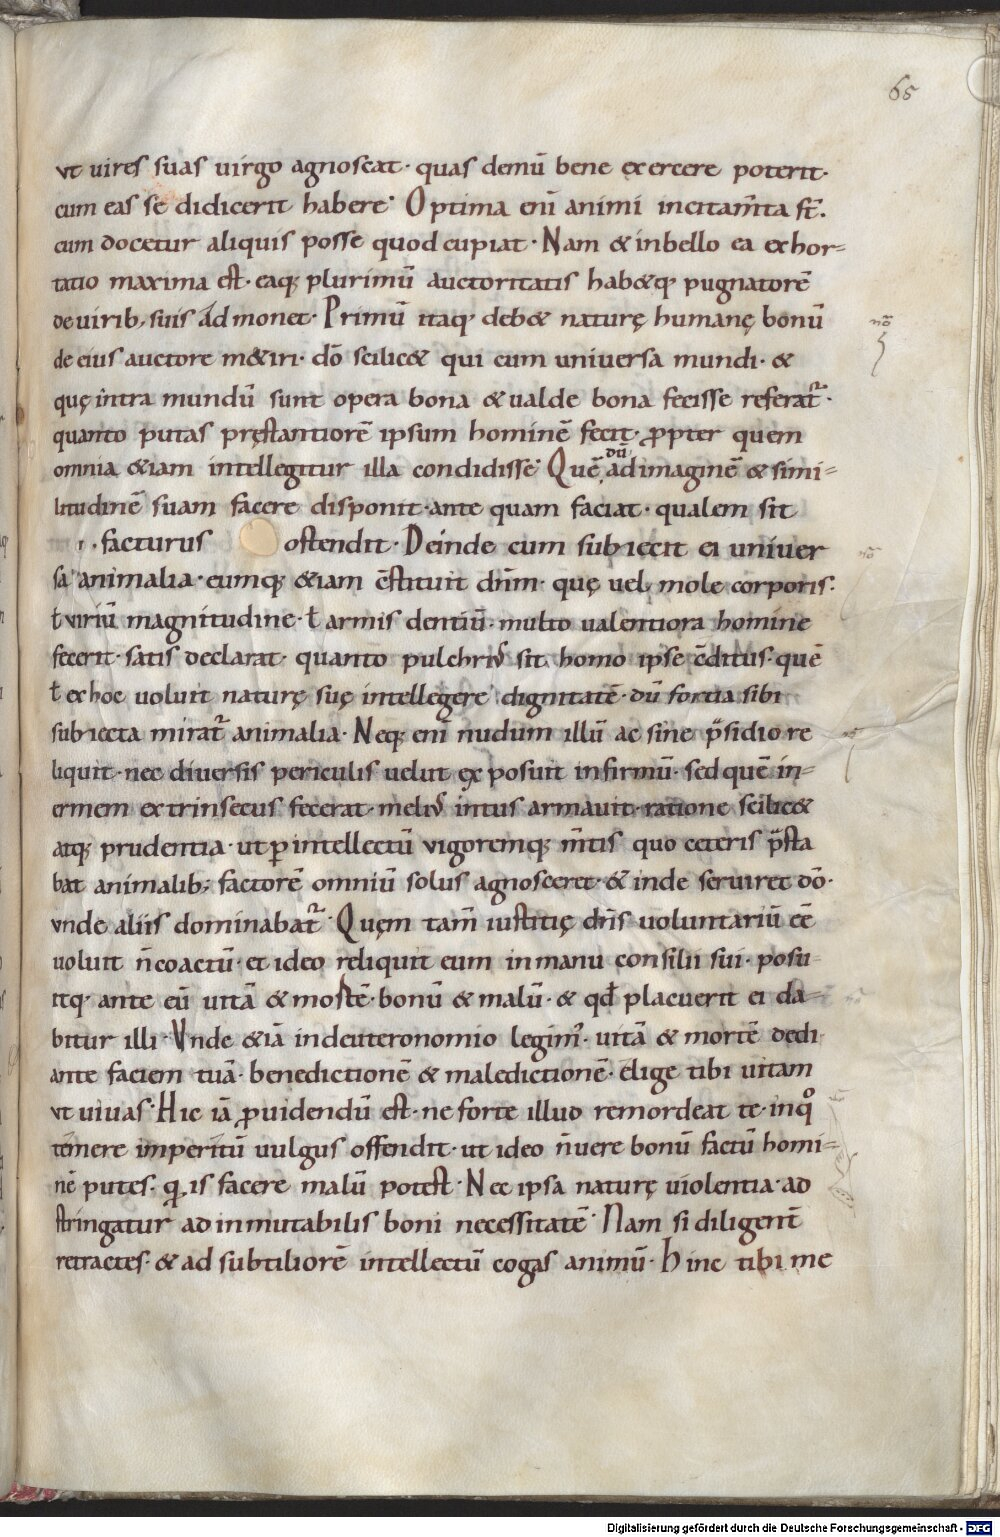 65
vt uires suas uirgo agnoscat· quas demū bene exercere poterit·
cum eas se didicerit habere· Optima eni̅ animi incitam̅ta st̅·
cum docetur aliquis posse quod cupiat· Nam & inbello ea exhor-
tatio maxima est· eaq; plurimū auctoritatis hab&q; pugnatorē
de uirib; suis admonet· Primū itaq; deb& naturę humanę bonū
de eius auctore m&iri· dō scilic& qui cum uniuersa mundi· &
quę intra mundū sunt opera bona & ualde bona fecisse referat̅·
quanto putas pręstantiorē ipsum hominē fecit· ꝓpter quem
omnia &iam intellegitur illa condidisse· Quē dū ad imaginē & simi-
litudinē suam facere disponit· ante quam faciat· qualem sit
facturus ostendit· Deinde cum subiecit ei uniuer
sa animalia· eumq; &iam c̅stituit dnm̅· quę uel mole corporis·
ł uiriū magnitudine· ł armis dentiū· multo ualentiora homine
fecerit· satis declarat· quanto pulchriꝰ sit homo ipse c̅ditus· quē
ł ex hoc uoluit naturę suę intellegere dignitatē· dū fortia sibi
subiecta mirat̅ animalia· Neq; eni̅ nudum illū ac sine p̅sidio re
liquit· nec diuersis periculis uelut exposuit infirmū· sed quē in-
ermem extrinsecus fecerat· meliꝰ intus armauit· ratione scilic&
atq; prudentia· ut ꝑ intellectū vigoremq; m̅tis quo ceteris p̅sta
bat animalib; factorē omniū solus agnosceret· & inde seruiret dō·
vnde aliis dominabat̅· Quęm tam̅ iustitię dn̅s uoluntariū eē
uoluit n̅ coactū· et ideo reliquit eum in manu consilii sui· posu
itq; ante eū uitā & mortē· bonū & malū· & qđ placuerit ei da-
bitur illi· Vnde &iā in deuteronomio legim̅· uitā & mortē dedi
ante faciem tuā· benedictionē & maledictionē· elige tibi uitam
vt uiuas· Hic iā ꝓuidendū est· ne forte illud remordeat te· inqͦ
temere imperitū uulgus offendit· ut ideo n̅ uere bonū factū homi-
nē putes· q̅ is facere malū potest· Nec ipsa naturę uiolentia· ad
stringatur ad inmutabilis boni necessitatē· Nam si diligent̅
retractes· & ad subtiliorē intellectū cogas animū· Hinc tibi me
nō
nō
Digitalisierung gefördert durch die Deutsche Forschungsgemeinschaft - DFG